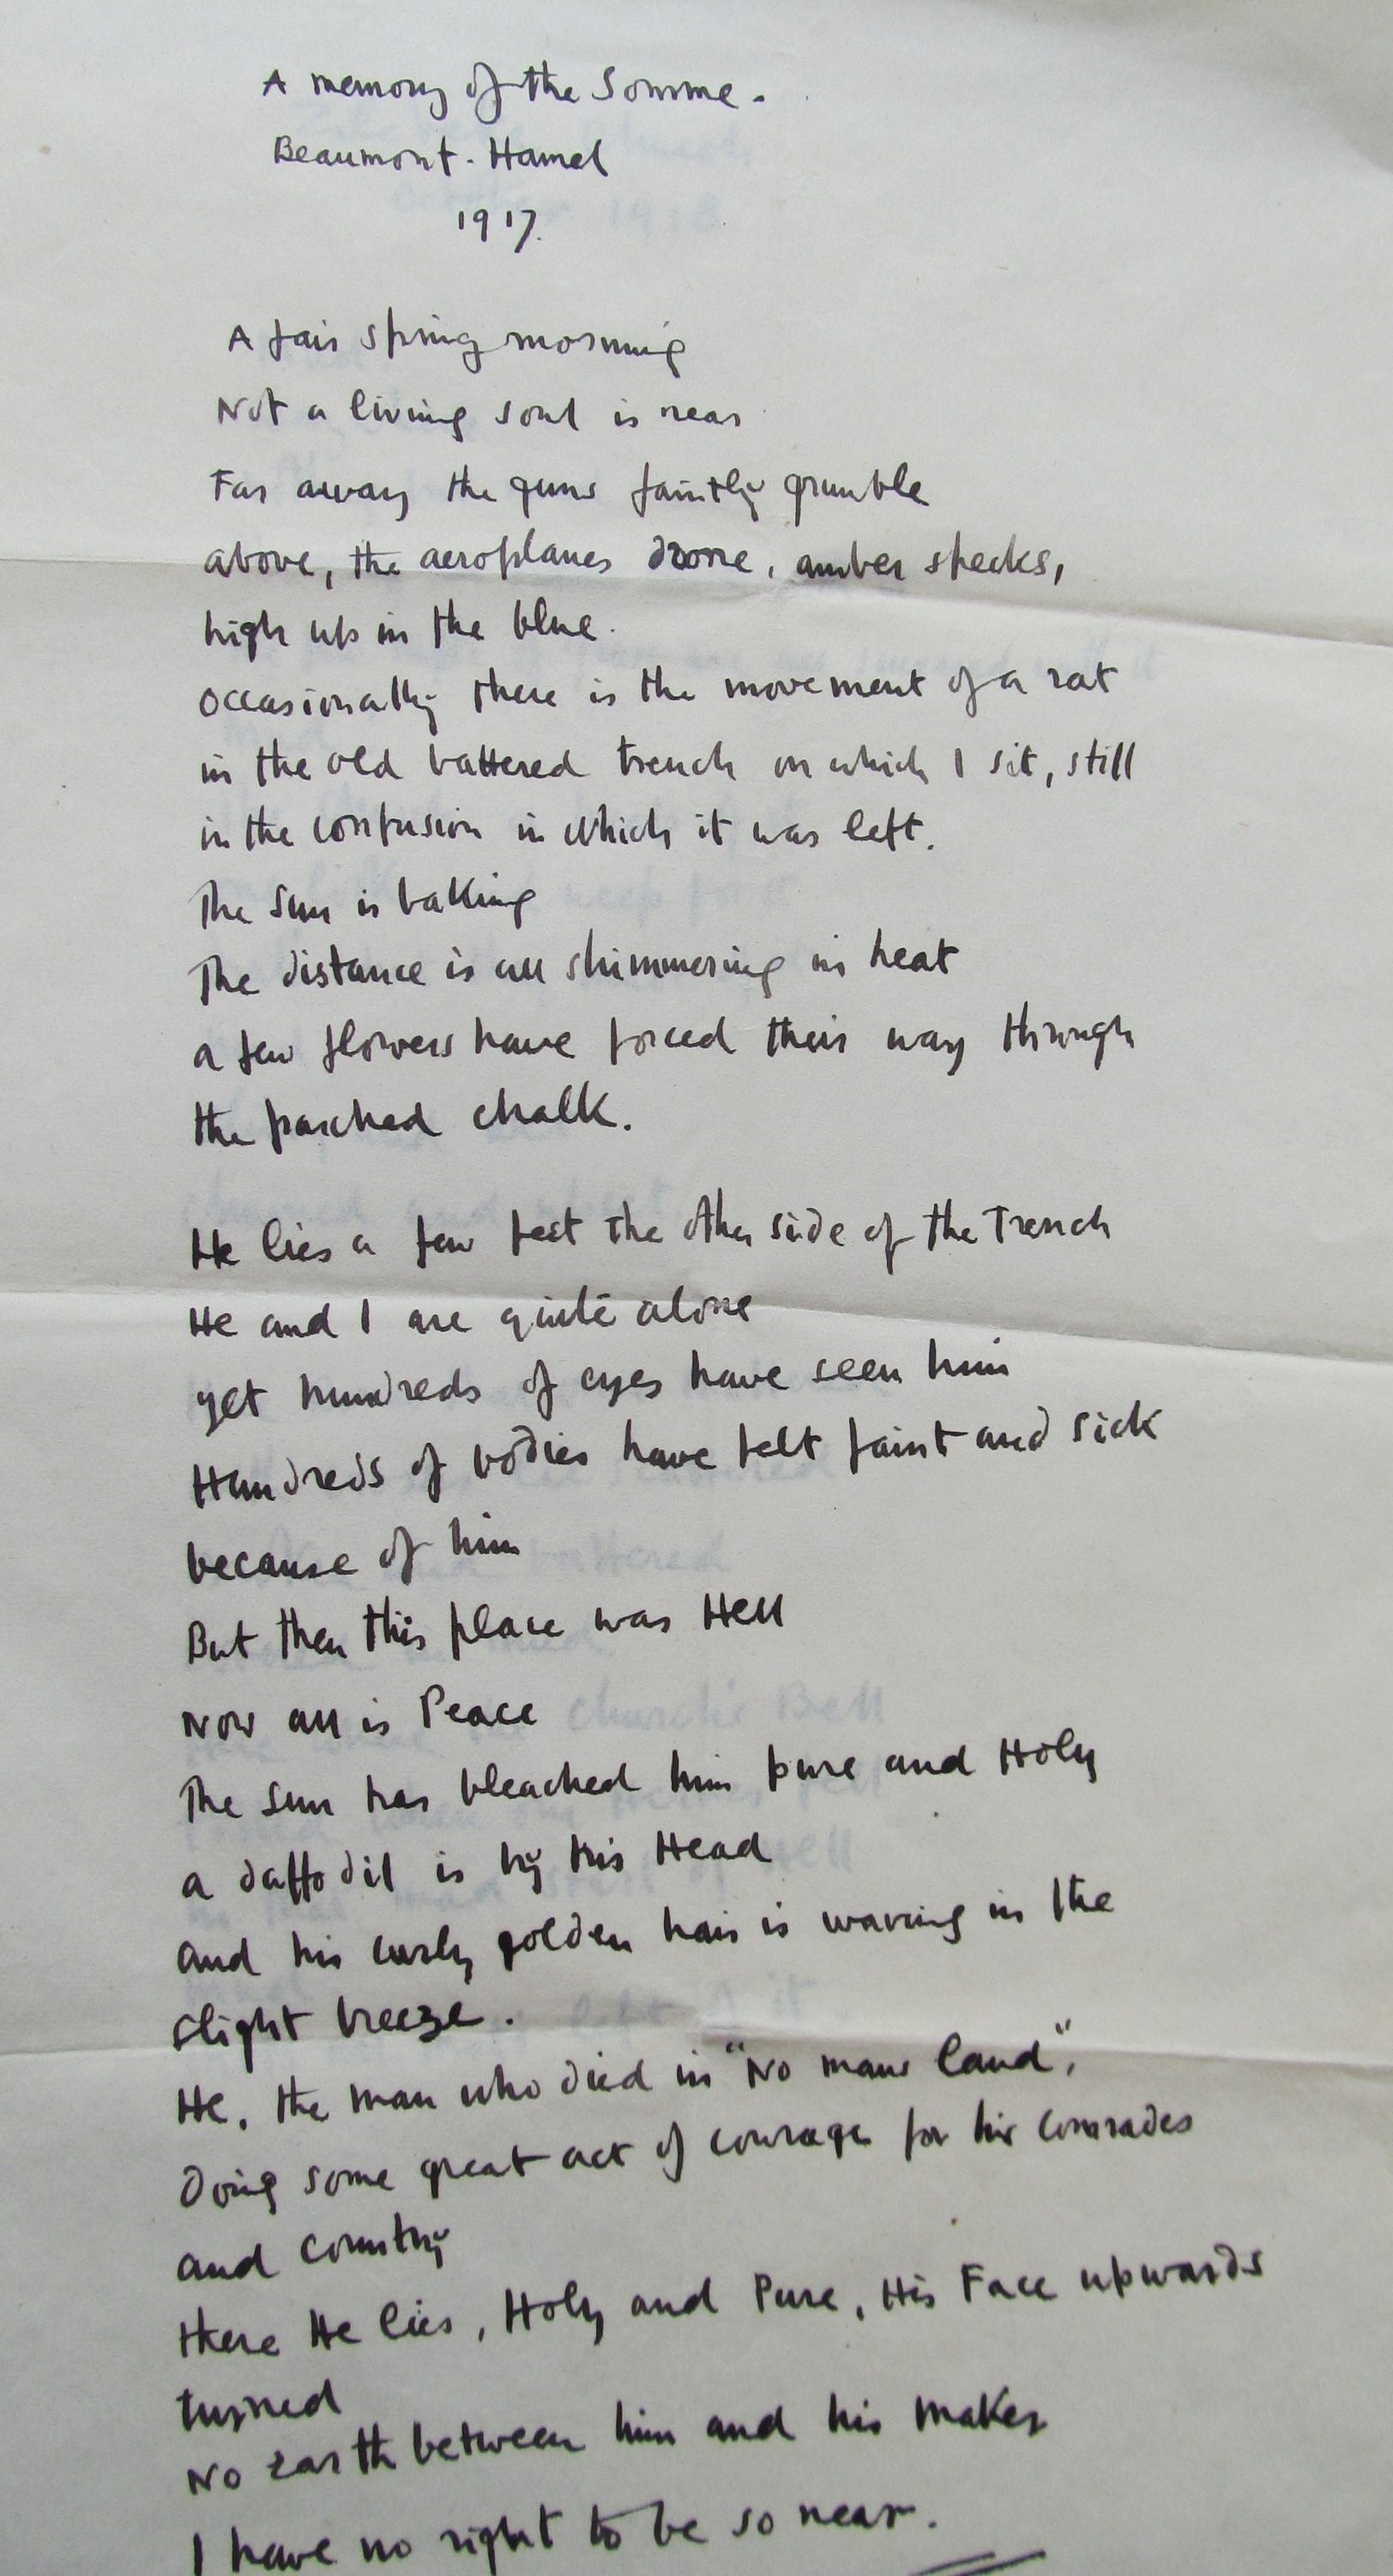 A memory of the Somme.
Beaumont-Hamel
1917.
A fair spring morning
Not a living soul is near
Far away the guns faintly grumble
above, the aeroplanes drone, amber specks,
high up in the blue.
Occasionally there is the movement of a rat
in the old battered trench on which I sit, still
in the confusion in which it was left.
The sun is baking
The distance is all shimmering in heat
a few flowers have forced their way through
the parched chalk.
He lies a few feet the other side of the Trench
He and I are quite alone
yet hundreds of eyes have seen him
Hundreds of bodies have felt faint and sick
because of him
But then this place was Hell
Now all is Peace
The sun has bleached him pure and Holy
a daffodil is by his Head
and his curly golden hair is waving in the
slight breeze.
He, the man who died in "No mans land",
Doing some great act of courage for his comrades
and country
there He lies, Holy and Pure, His Face upwards
turned
No Earth between him and his maker
I have no right to be so near.